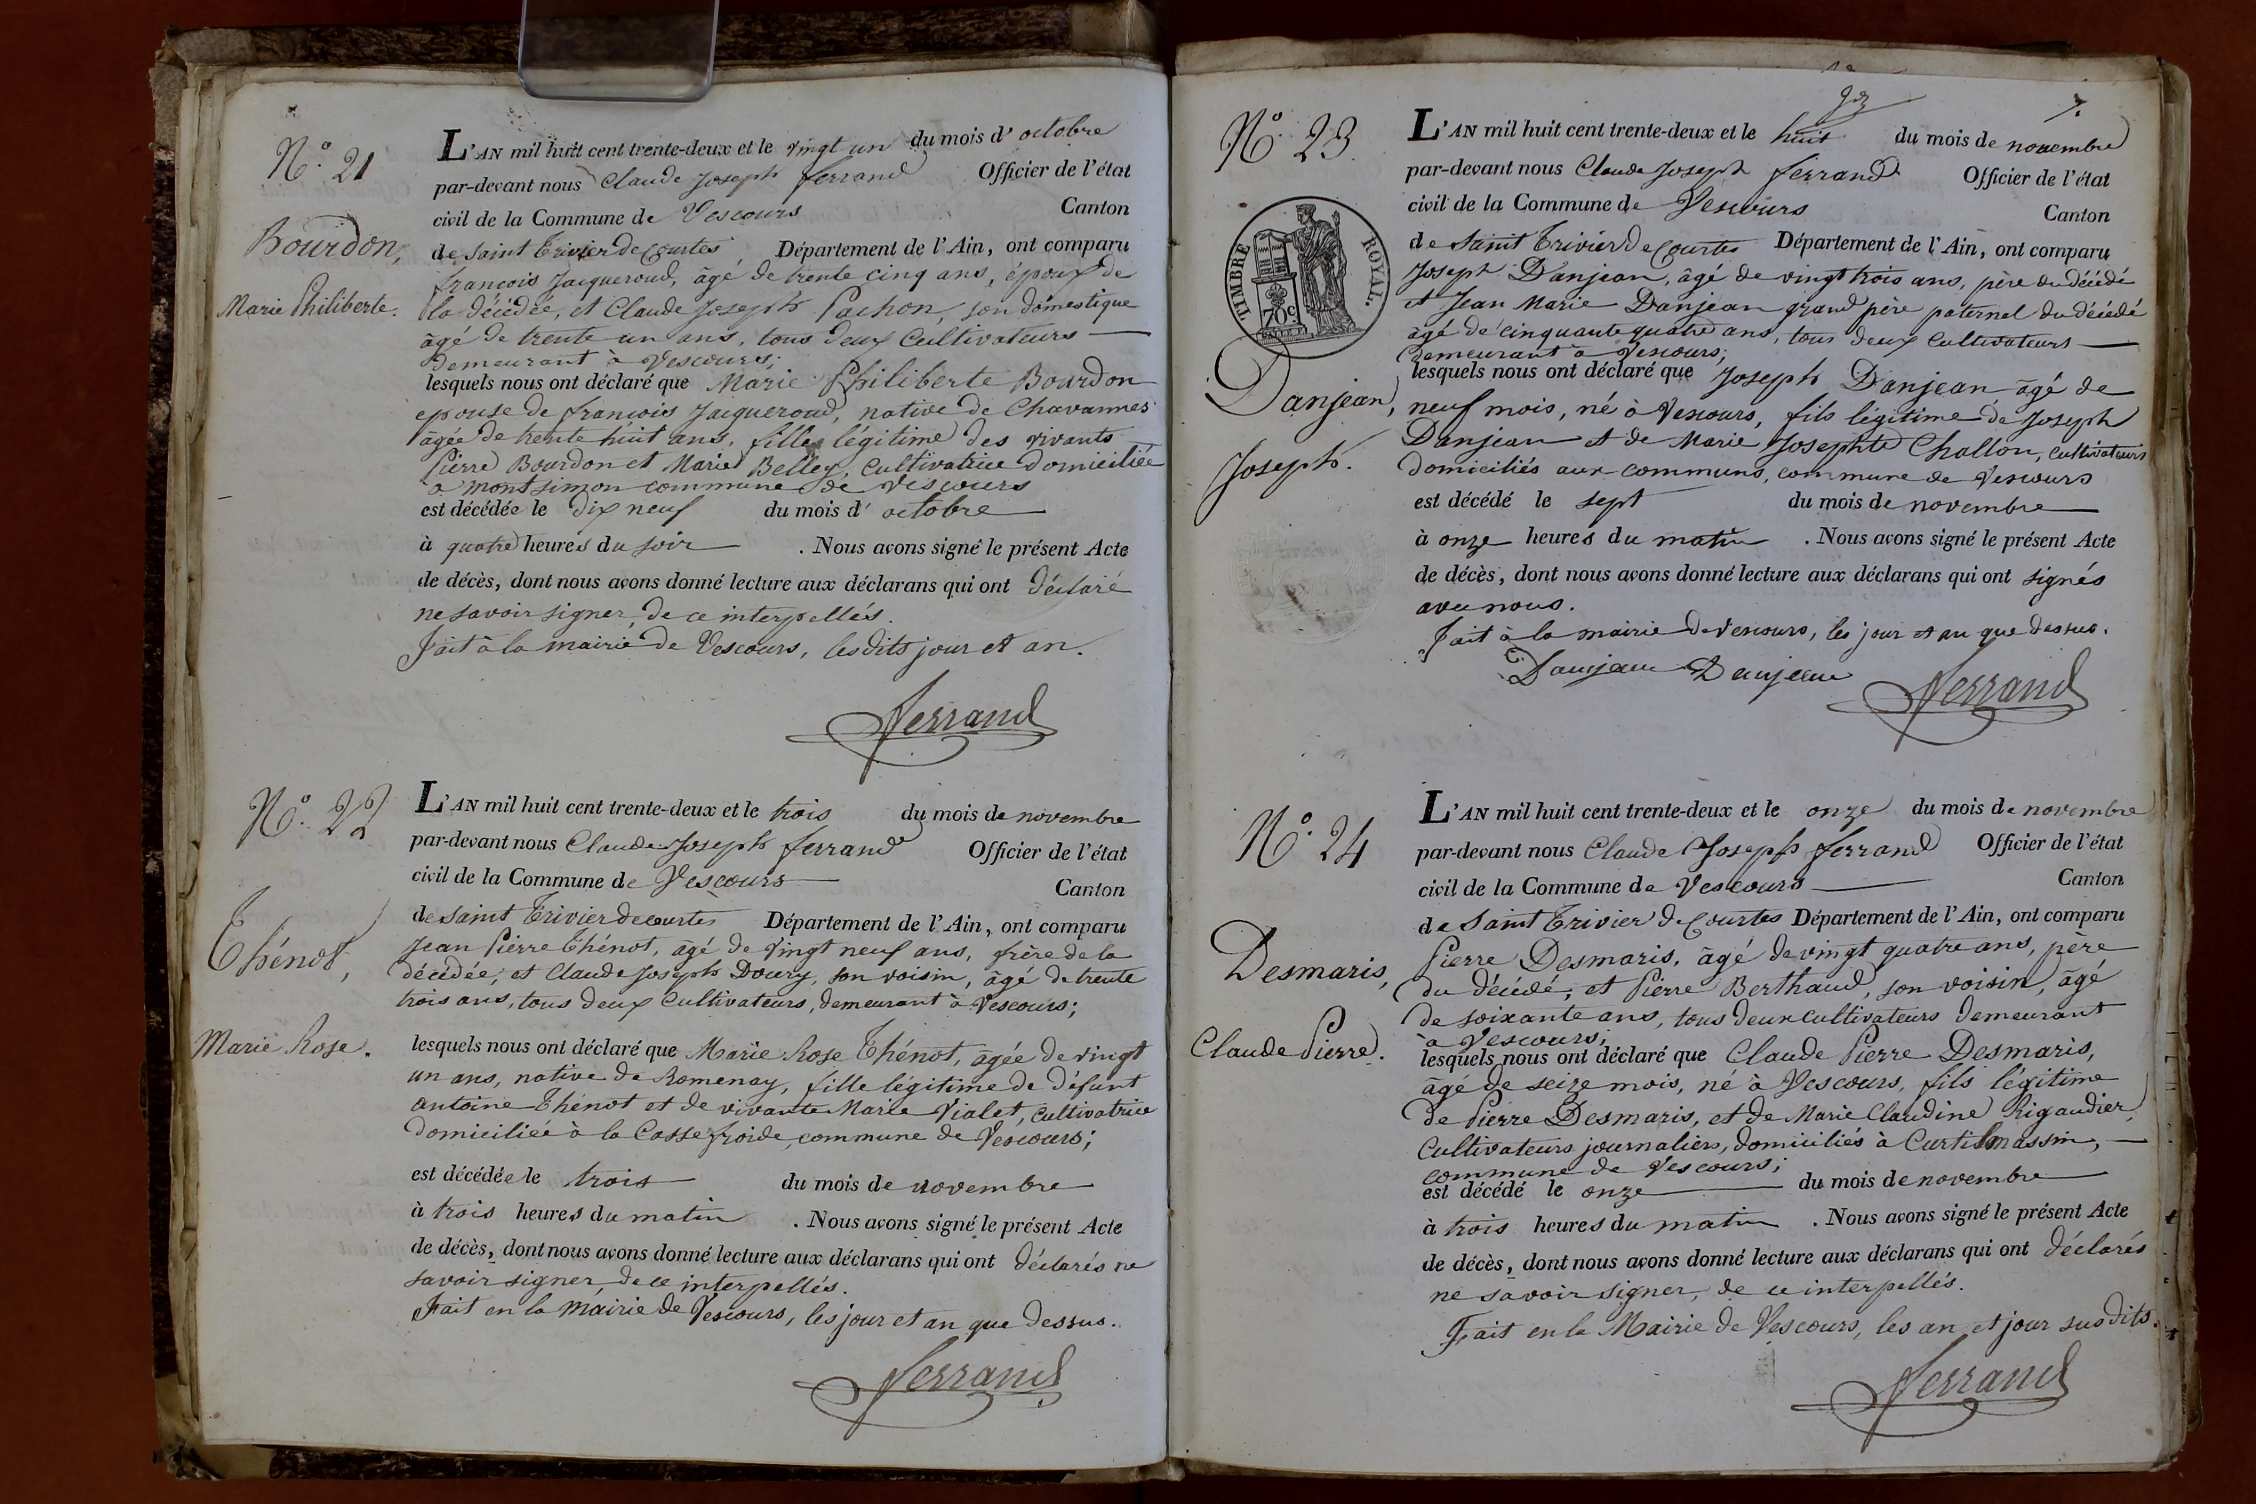 N.° 21
Bourdon,
Marie Philiberte.
L'AN mil huit cent trente-deux et le vingt un du mois d'octobre
par-devant nous Claude Joseph ferrand Officier de l'état
civil de la Commune de Vescours Canton
de Saint Trivier de Courtes Département de l'Ain, ont comparu
françois Jacqueroud, âgé de trente cinq ans, époux de
la décédée, et Claude Joseph Pachon, son domestique
âgé de trente un ans, tous deux Cultivateurs
demeurant à Vescours;
lesquels nous ont déclaré que Marie Philiberte Bourdon
epouse de françois Jacqueroud, native de Chavannes
âgée de trente huit ans, fille légitime des vivants
Pierre Bourdon et Marie Belley, Cultivatrice domiciliée
à montsimon commune de Vescours
est décédée le dix neuf du mois d'octobre
à quatre heures du soir . Nous avons signé le présent Acte
de décès, dont nous avons donné lecture aux déclarans qui ont déclaré
ne savoir signer, de ce interpellés.
Fait à la mairie de Vescours, lesdits jour et an.
ferrand
N.° 22
Thénot,
Marie Rose.
L'AN mil huit cent trente-deux et le trois du mois de novembre
par-devant nous Claude Joseph ferrand Officier de l'état
civil de la Commune de Vescours Canton
de Saint Trivier de courtes Département de l'Ain, ont comparu
Jean Pierre Thénot, âgé de vingt neuf ans, frère de la
décédée, et Claude Joseph Doury, son voisin, âgé de trente
trois ans, tous deux Cultivateurs, demeurant à Vescours;
lesquels nous ont déclaré que Marie Rose Thénot, âgée de vingt
un ans, native de Romenay, fille légitime de défunt
antoine Thénot et de vivante Marie Vialet, Cultivatrice
domiciliée à la Cassefroide, commune de Vescours;
est décédée le trois du mois de novembre
à trois heures du matin . Nous avons signé le présent Acte
de décès, dont nous avons donné lecture aux déclarans qui ont déclarés ne
savoir signer, de ce interpellés.
Fait en la mairie de Vescours, les jour et an que dessus.
ferrand
7.
N.° 23.
TIMBRE ROYAL.
70c.
Danjean,
Joseph.
L'AN mil huit cent trente-deux et le huit du mois de novembre
par-devant nous Claude Joseph ferrand Officier de l'état
civil de la Commune de Vescours Canton
de Saint Trivier de Courtes Département de l'Ain, ont comparu
Joseph Danjean, âgé de vingt trois ans, père du décédé
et Jean Marie Danjean grand père paternel du décédé
âgé de cinquante quatre ans, tous deux Cultivateurs
demeurant à Vescours;
lesquels nous ont déclaré que Joseph Danjean âgé de
neuf mois, né à Vescours, fils légitime de Joseph
Danjean et de Marie Josephte Challon, cultivateurs
domiciliés aux communs, commune de Vescours
est décédé le sept du mois de novembre
à onze heures du matin . Nous avons signé le présent Acte
de décès, dont nous avons donné lecture aux déclarans qui ont signés
avec nous.
Fait à la mairie de Vescours, les jour et an que dessus.
Danjean Danjean ferrand
N.° 24
Desmaris,
Claude Pierre.
L'AN mil huit cent trente-deux et le onze du mois de novembre
par-devant nous Claude Joseph ferrand Officier de l'état
civil de la Commune de Vescours Canton
de Saint Trivier de Courtes Département de l'Ain, ont comparu
Pierre Desmaris, âgé de vingt quatre ans, père
du décédé, et Pierre Berthaud, son voisin, âgé
de soixante ans, tous deux cultivateurs demeurant
à Vescours;
lesquels nous ont déclaré que Claude Pierre Desmaris,
âgé de seize mois, né à Vescours, fils légitime
de Pierre Desmaris, et de Marie Claudine Rigaudier,
Cultivateurs journaliers, domiciliés à Curtilmassin,
commune de Vescours;
est décédé le onze du mois de novembre
à trois heures du matin . Nous avons signé le présent Acte
de décès, dont nous avons donné lecture aux déclarans qui ont déclarés
ne savoir signer, de ce interpellés.
Fait en la Mairie de Vescours, les an et jour susdits.
ferrand